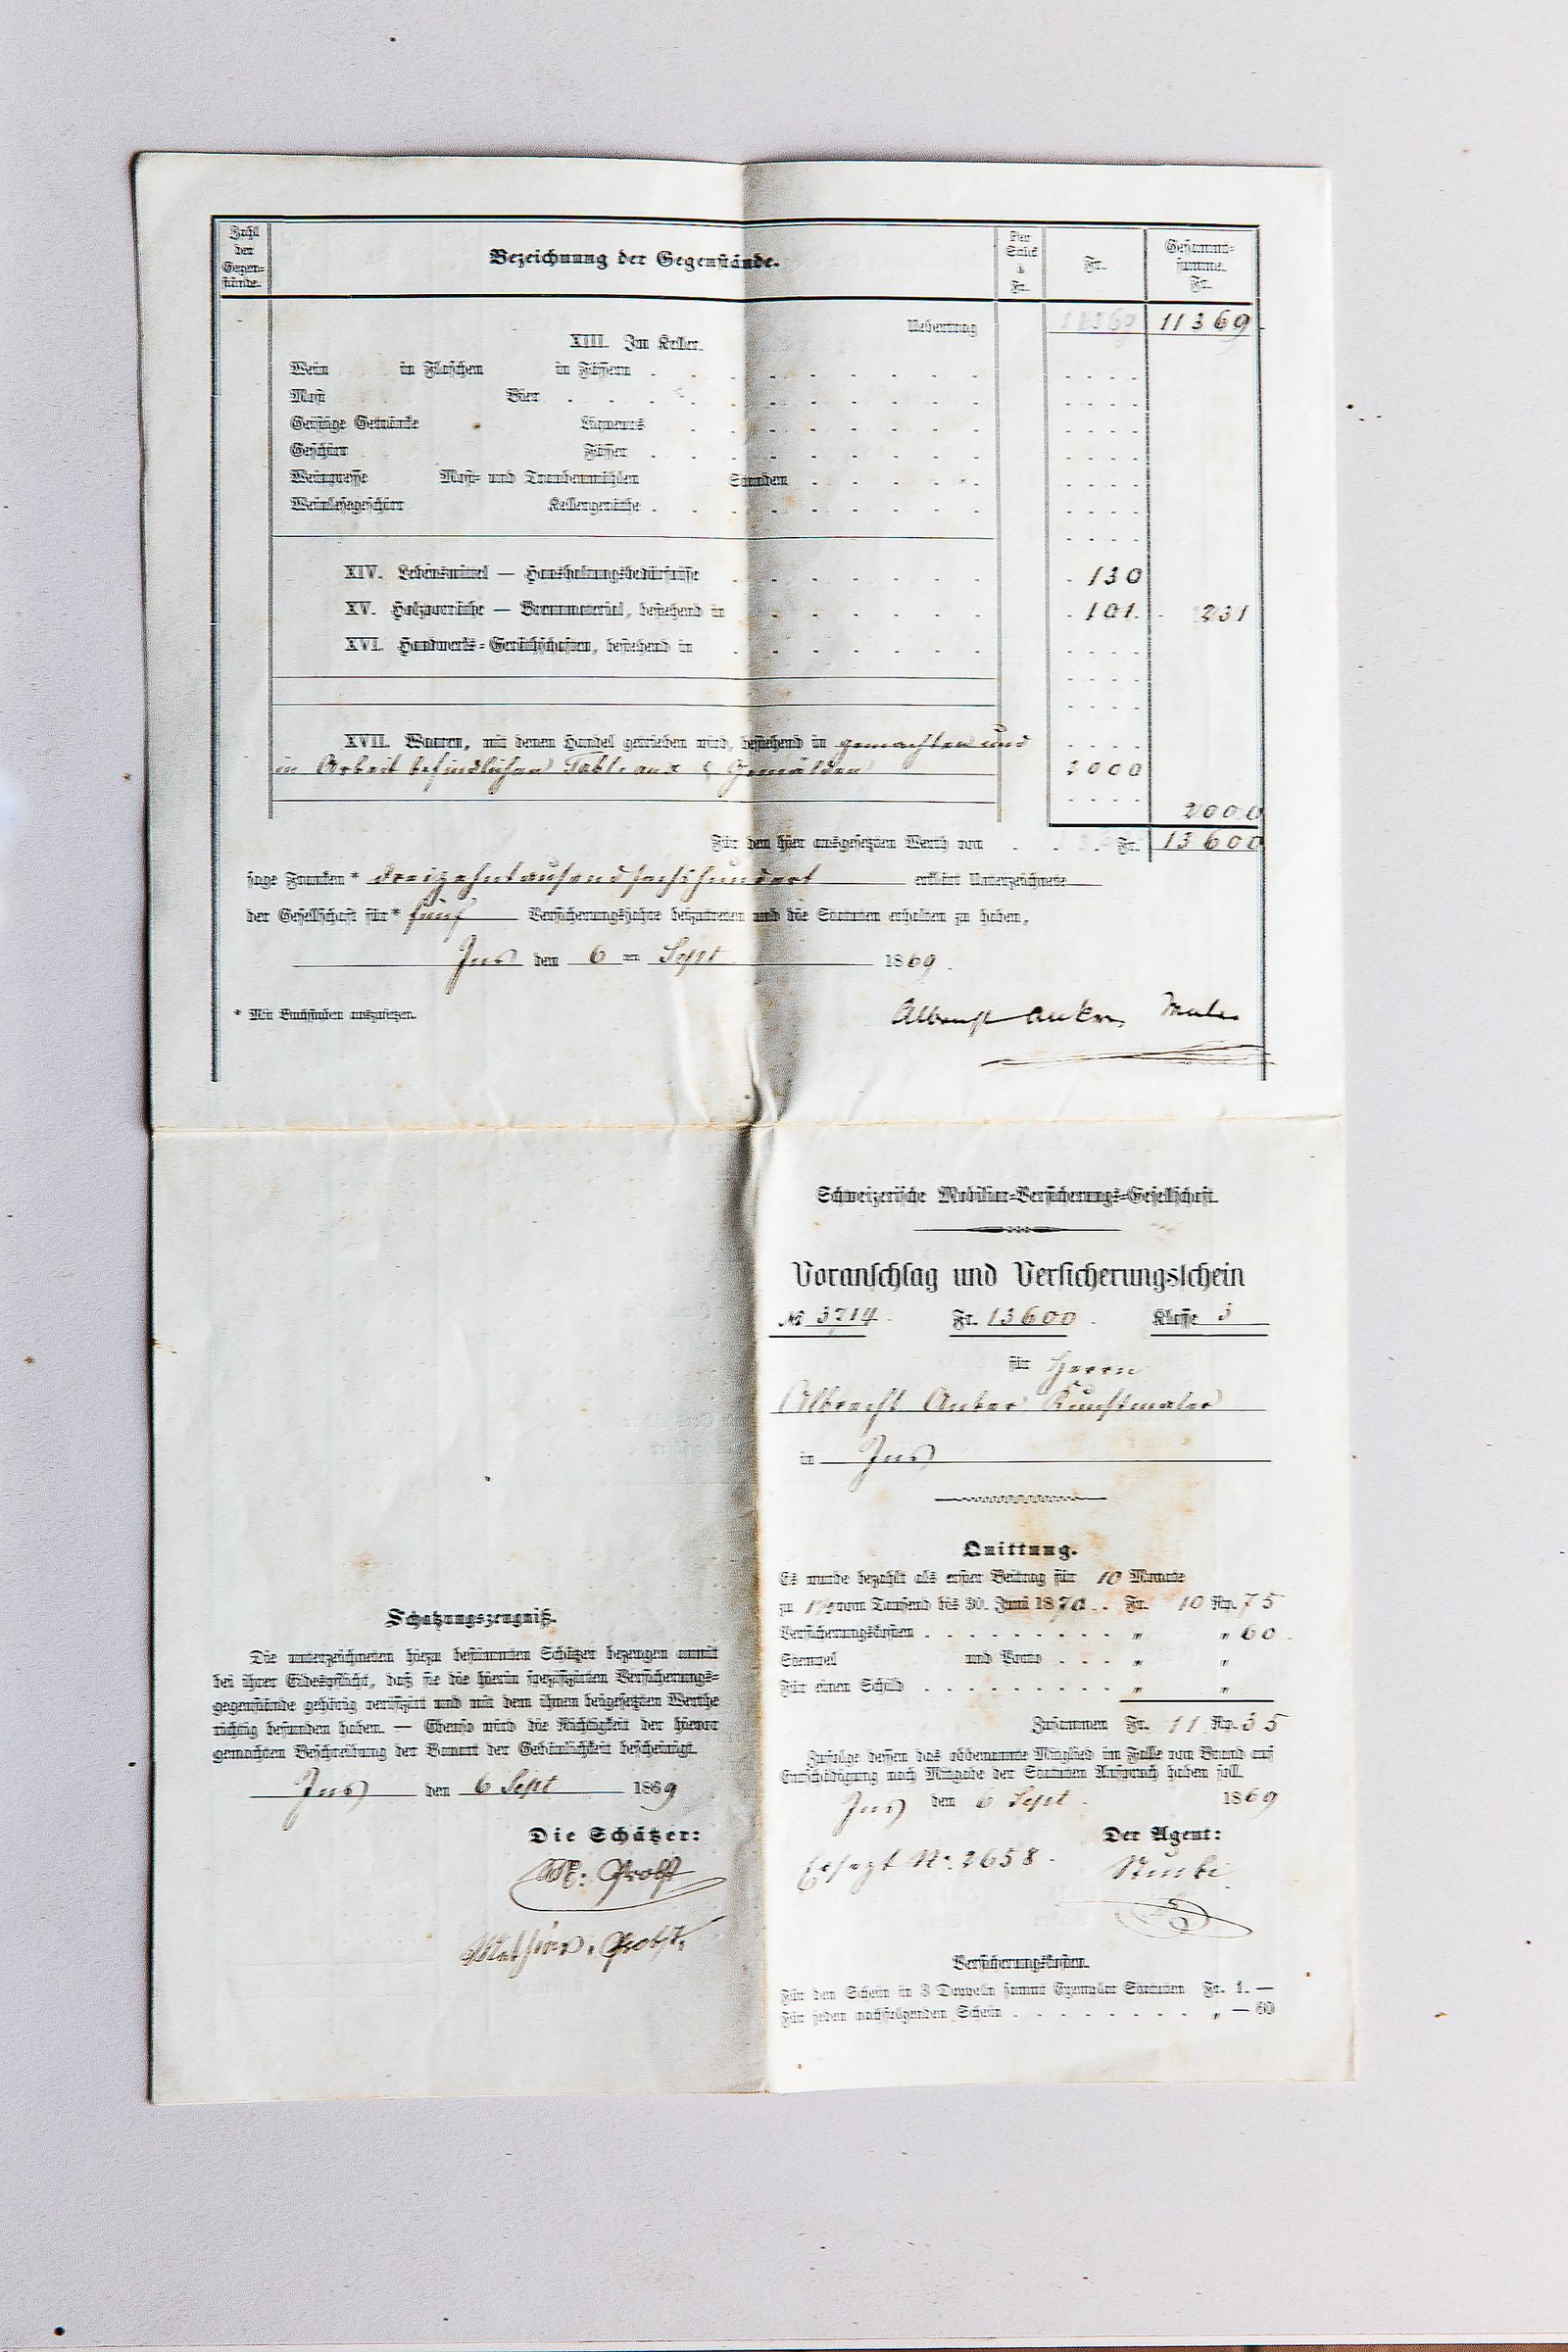 Zahl der Gegen-stände.
Bezeichnung der Gegenstände.
Per Stück à Fr.
Fr.
Gesammt-summe. Fr.
Uebertrag 11369 11369
XIII. Im Keller.
Wein in Flaschen in Fässern
Most Bier
Geistige Getränke Liqueurs
Geschirr Fässer
Weinpresse Most- und Traubenmühlen Standen
Weinlesegeschirr Kellergeräthe
XIV. Lebensmittel — Haushaltungsbedürfnisse 130
XV. Holzvorräthe — Brennmaterial, bestehend in 101. 231
XVI. Handwerks-Geräthschaften, bestehend in
XVII. Waaren, mit denen Handel getrieben wird, bestehend in gemachten und
in Arbeit befindlichen Tableaux & Gemälden 2000
2000
Für den hier ausgesetzten Werth von Fr. 13600
sage Franken * dreizehntausendsechshundert erklärt Unterzeichnete
der Gesellschaft für * fünf Versicherungsjahre beizutreten und die Statuten erhalten zu haben,
Ins den 6 ten Sept 1869.
* Mit Buchstaben auszusetzen.
Albrecht Anker, Maler
Schatzungszeugniß.
Die unterzeichneten hiezu bestimmten Schätzer bezeugen anmit
bei ihrer Eidespflicht, daß sie die hierin spezifizirten Versicherungs-
gegenstände gehörig verifizirt und mit dem ihnen beigesetzten Werthe
richtig befunden haben. — Ebenso wird die Richtigkeit der hievor
gemachten Beschreibung der Bauart der Gebäulichkeit bescheinigt.
Ins den 6 Sept 1869
Die Schätzer:
Probst
Probst.
Schweizerische Mobiliar-Versicherungs-Gesellschaft.
Voranschlag und Versicherungsschein
No 3714. Fr. 13600. Klasse 3
für Herrn
Albrecht Anker Kunstmaler
in Ins
Quittung.
Es wurde bezahlt als erster Beitrag für 10 Monate
zu vom Tausend bis 30. Juni 1870. Fr. 10 Rp. 75
Versicherungskosten „ „ 60.
Stempel und Porto „ „
Für einen Schild „ „
Zusammen Fr. 11 Rp. 35
Zufolge dessen das obbenannte Mitglied im Falle von Brand auf
Entschädigung nach Mitgabe der Statuten Anspruch haben soll.
Ins den 6 Sept. 1869
Der Agent:
Ersezt Nr. 2658. Stucki
Versicherungskosten.
Für den Schein in 3 Doppeln sammt Exemplar Statuten Fr. 1. —
Für jeden nachfolgenden Schein „ — 60